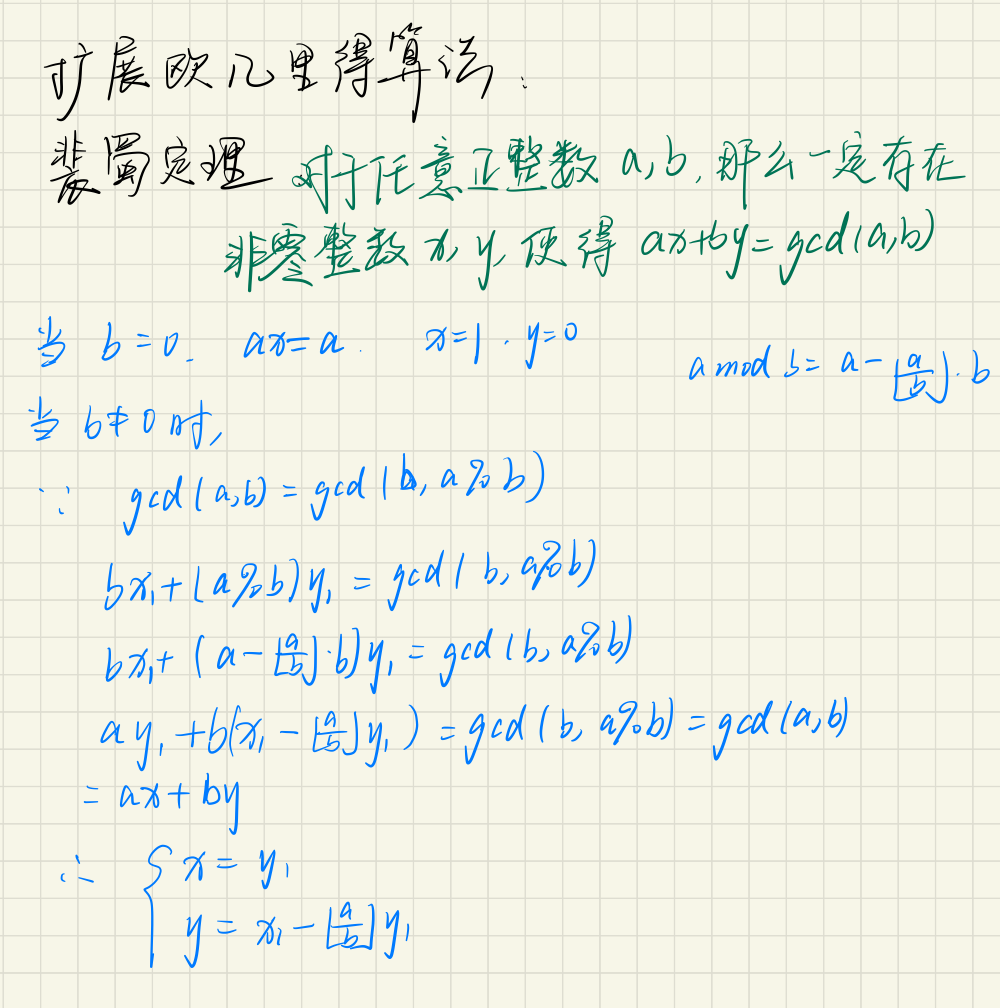 扩展欧几里得算法:
裴蜀定理 对于任意正整数 a,b, 那么一定存在
非零整数 x, y, 使得 ax+by=gcd(a,b)
当 b=0. ax=a. x=1. y=0
a mod b = a-⌊a/b⌋·b
当 b≠0 时,
∵ gcd(a,b)=gcd(b, a%b)
bx₁+(a%b)y₁=gcd(b, a%b)
bx₁+(a-⌊a/b⌋·b)y₁=gcd(b, a%b)
ay₁+b(x₁-⌊a/b⌋y₁)=gcd(b, a%b)=gcd(a,b)
=ax+by
∴ { x=y₁
y=x₁-⌊a/b⌋y₁